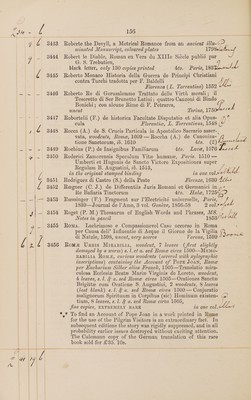 136
2443 Roberte the Devyll, a Metrical Romance from an ancient illuminated Manuscript, coloured plates 1798
2444 Robert le Diable, Roman en Vers du XIIIe Siècle publié par G. S. Trebutien,
black letter, only 130 copies printed 4to. Paris, 1837
2445 Roberto Monaco Historia della Guerra de Principi Christiani contra Turchi tradotta per F. Baldelli
Florence (L. Torrentino) 1552
2446 Roberto Re di Gerusalemme Trattato delle Virtù morali; il Tesoretto di Ser Brunetto Latini; quattro Canzoni di Bindo Bonichi; con alcune Rime di F. Petrarca,
uncut Torino, 1750
2447 Robortelli (F.) de historica Facultate Disputatio et alia Opuscula Florentiæ, L. Torrentinus, 1548
2448 Rocca (A.) de S. Crucis Particula in Apostolico Sacrario asservata, woodcuts, Romæ, 1609—Roccha (A.) de Canonizatione Sanctorum, ib. 1610 4to. (2)
2449 Rochius (P.) de Insignibus Familiarum 4to. Lucæ, 1715
2450 Roderici Zamorensis Speculum Vitæ humanæ, Paris 1510—Umberti et Hugonis de Sancto Victore Expositiones super Regulam B. Augustini, ib. 1513,
in the original stamped binding in one vol.
2451 Rodriguez di Castro (S.) della Peste Firenze, 1630
2452 Roegner (C. J.) de Differentiis Juris Romani et Germanici in Re Salinria Tinctorum 4to. Halæ, 1725
2453 Roessinger (F.) Fragment sur l'Electricité universelle, Paris, 1839—Journal de l'Ame, 2 vol. Genève, 1856-58 2 vol.
2454 Roget (P. M.) Thesaurus of English Words and Phrases, MS. Notes in pencil 1853
2455 ROMA. Lettioncia e Compassionevol Caso occorso in Roma per Causa dell' Influentie d' Acqua il Giorno de la Vigilia di Natale, 1598, uncut, very scarce
2456 ROMÆ URBIS MIRABILIA, woodcut, 7 leaves (first slightly damaged by a worm) s. l. et a. sed Romæ circa 1500—MIRABILIA ROMÆ, curious woodcuts (several with xylographic inscriptions) containing the Account of POPE JOAN, Romæ per Eucharium Silber alias Franck, 1500—Translatio miraculosa Ecclesiæ Beatæ Mariæ Virginis de Loreto, woodcut, 4 leaves, s. l. et a. sed Romæ circa 1505—Orationes Sanctæ Brigittæ cum Oratione S. Augustini, 2 woodcuts, 8 leaves (last blank) s. l. et a. sed Romæ circa 1500—Conjuratio malignorum Spirituum in Corpibus (sic) Hominum existentium, 8 leaves, s. l. et a. sed Romæ circa 1505,
five copies, EXTREMELY RARE in one vol.
*** To find an Account of Pope Joan in a work printed in Rome for the use of the Pilgrim Visitors is an extraordinary fact. In subsequent editions the story was rigidly suppressed, and in all probability earlier issues destroyed without exciting attention. The Culemann copy of the German translation of this rare book sold for £35. 10s.